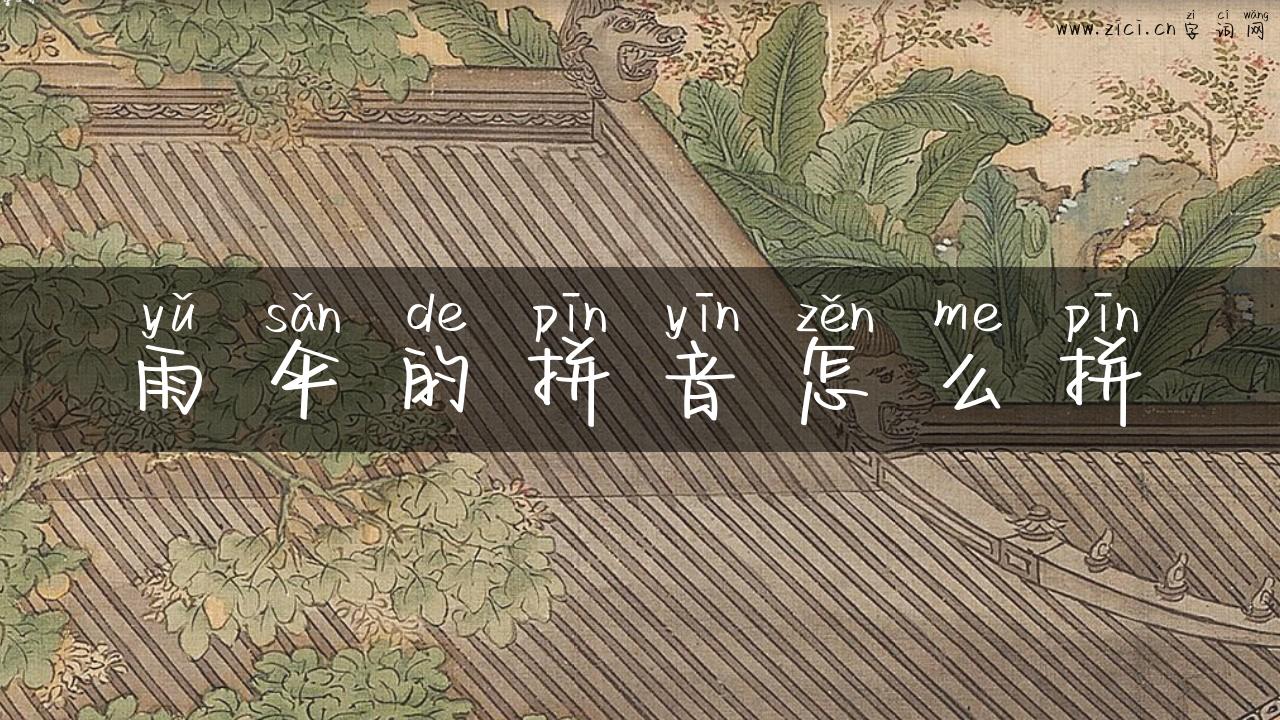 www.zici.cn zì cí wǎng
字词网
yǔ sǎn de pīn yīn zěn me pīn
雨伞的拼音怎么拼